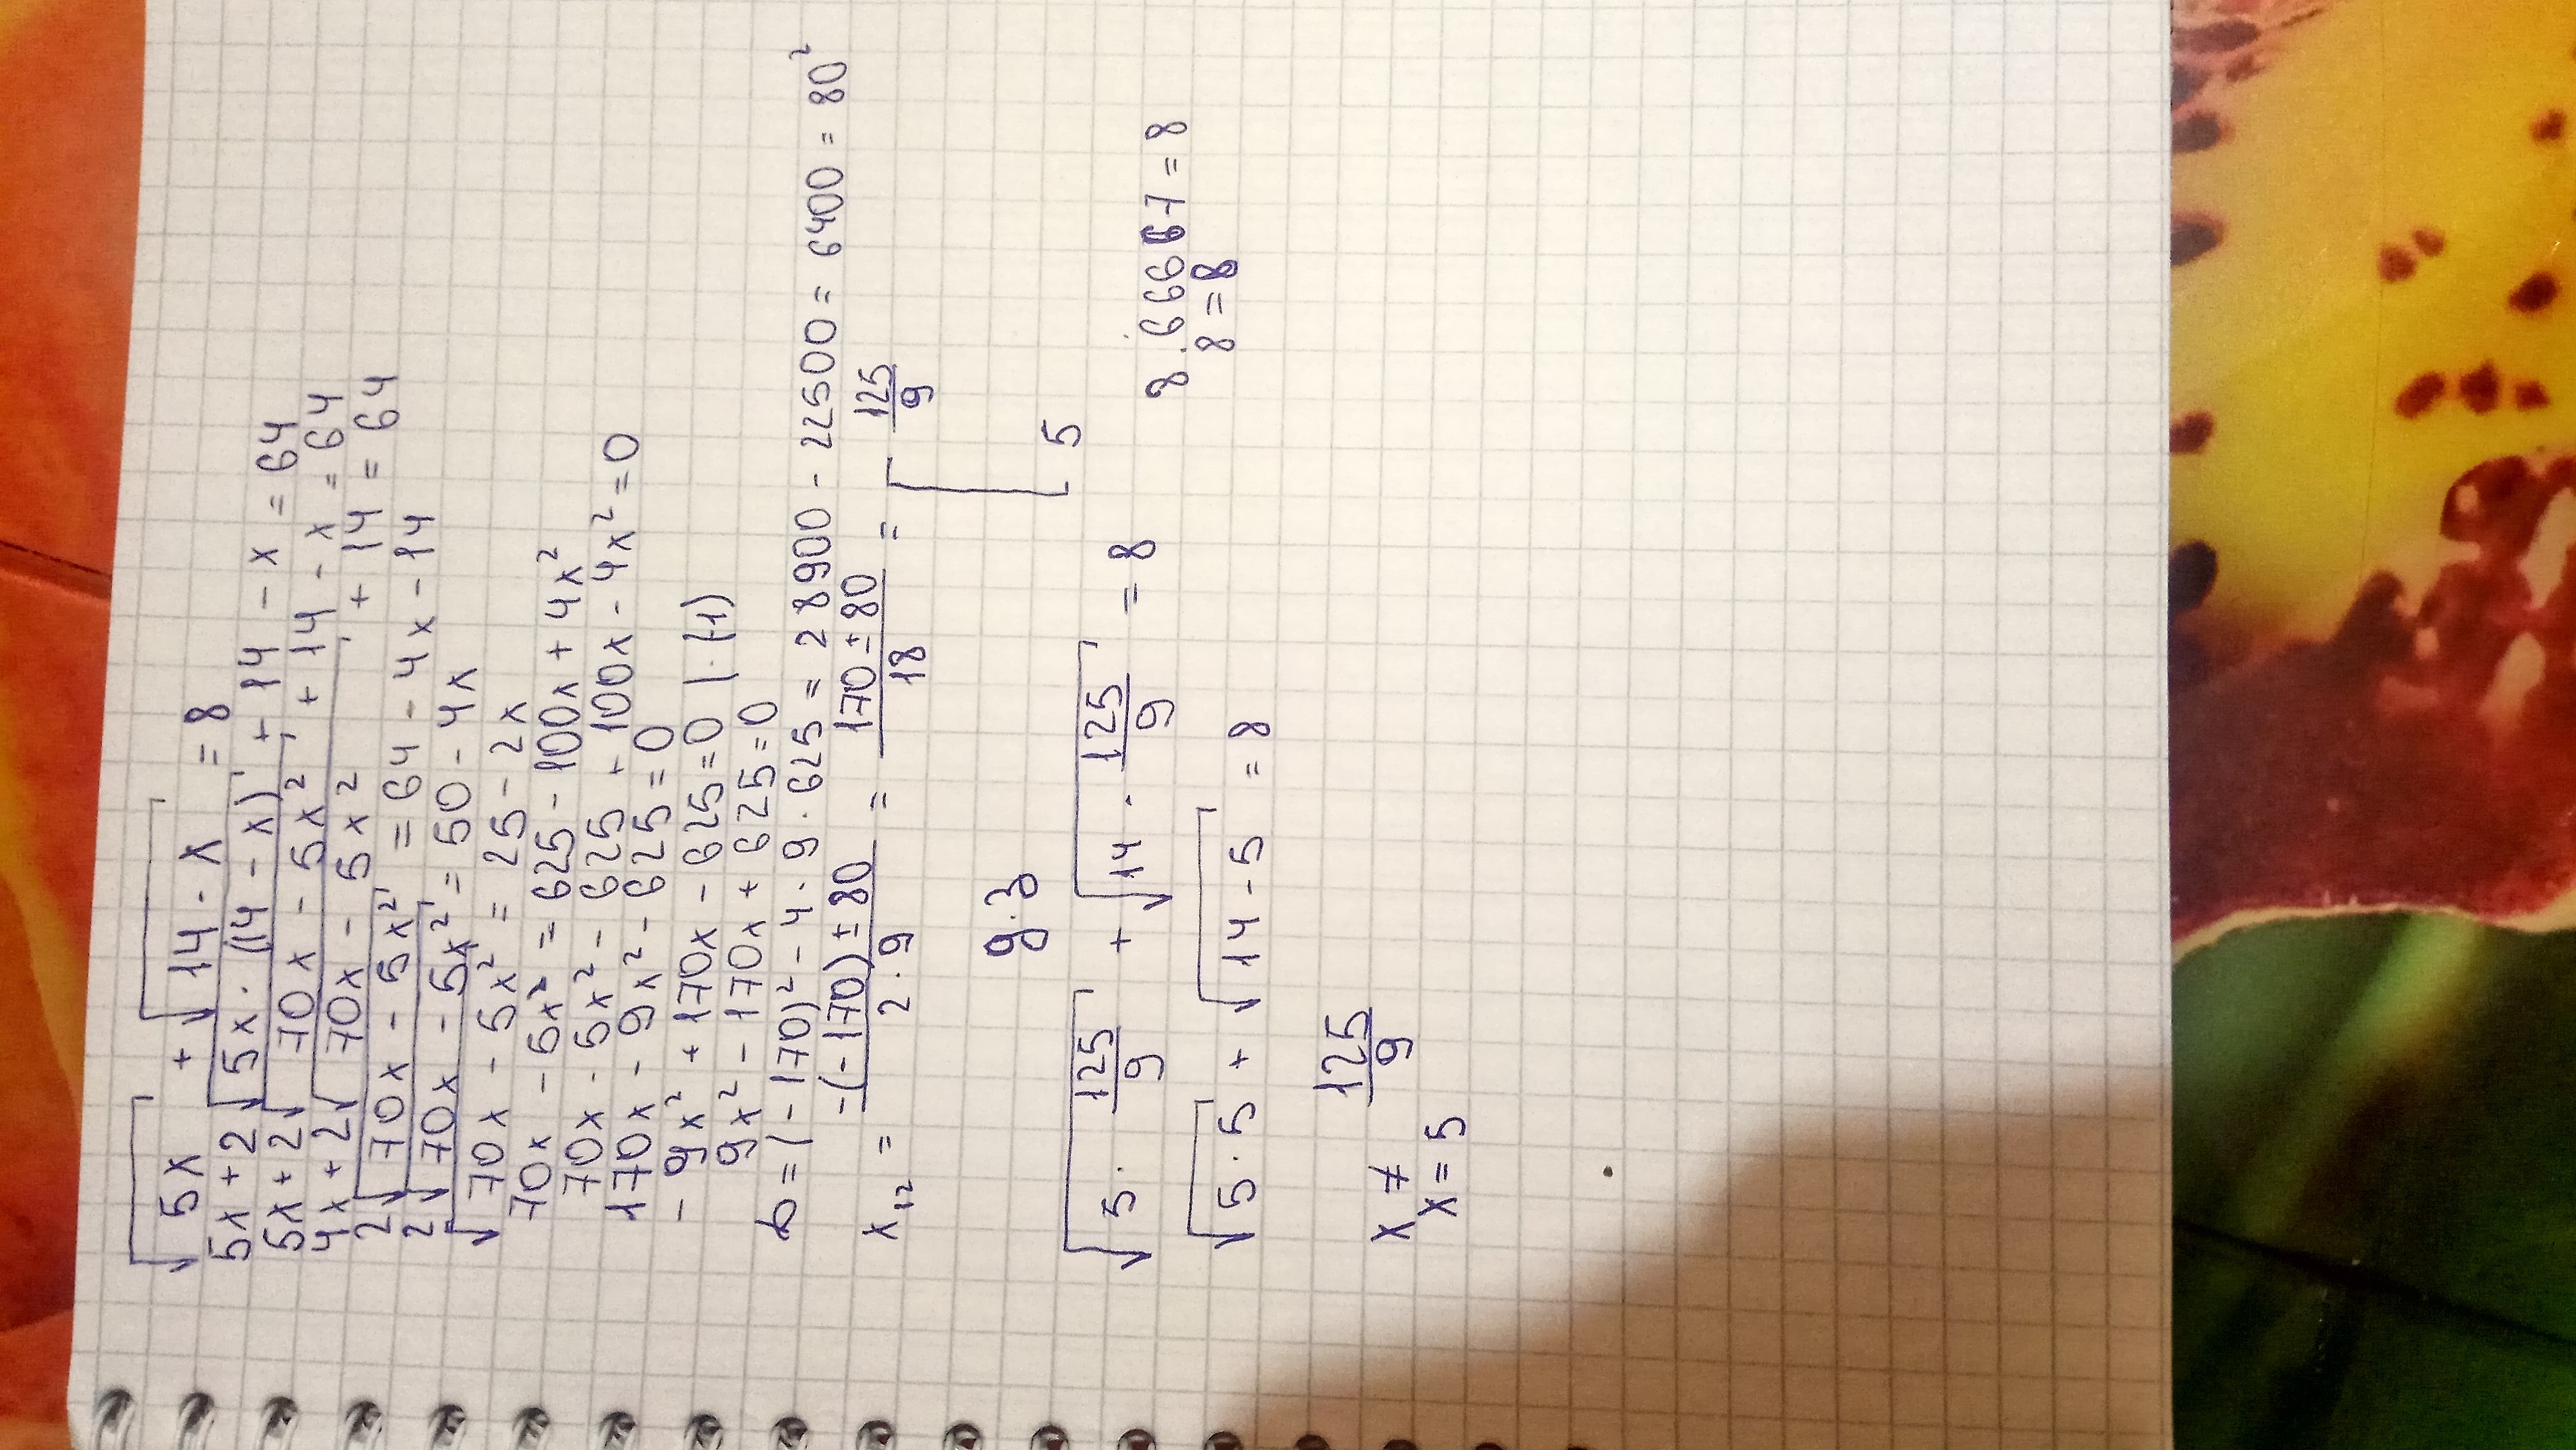 √5x + √14 - x = 8
5x + 2√5x · (14 - x) + 14 - x = 64
5x + 2√70x - 5x² + 14 - x = 64
4x + 2√70x - 5x² + 14 = 64
2√70x - 5x² = 64 - 4x - 14
2√70x - 5x² = 50 - 4x
√70x - 5x² = 25 - 2x
70x - 5x² = 625 - 100x + 4x²
70x - 5x² - 625 + 100x - 4x² = 0
170x - 9x² - 625 = 0
- 9x² + 170x - 625 = 0 | · (-1)
9x² - 170x + 625 = 0
D = (- 170)² - 4 · 9 · 625 = 28900 - 22500 = 6400 = 80²
x₁₂ = -(-170) ± 80 / 2 · 9 = 170 ± 80 / 18 = [ 125/9
5
√5 · 125/9 + √14 - 125/9 = 8 8.66667 = 8
√5 · 5 + √14 - 5 = 8 8 = 8
x ≠ 125/9
x = 5